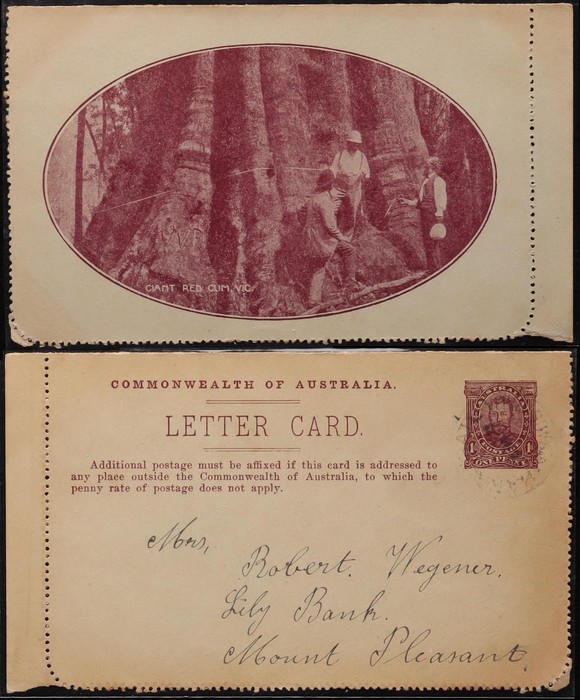 GIANT RED GUM, VIC.
COMMONWEALTH OF AUSTRALIA.
LETTER CARD.
Additional postage must be affixed if this card is addressed to
any place outside the Commonwealth of Australia, to which the
penny rate of postage does not apply.
AUSTRALIA
POSTAGE
1D 1D
ONE PENNY
Mrs,
Robert. Wegener.
Lily Bank.
Mount Pleasant.